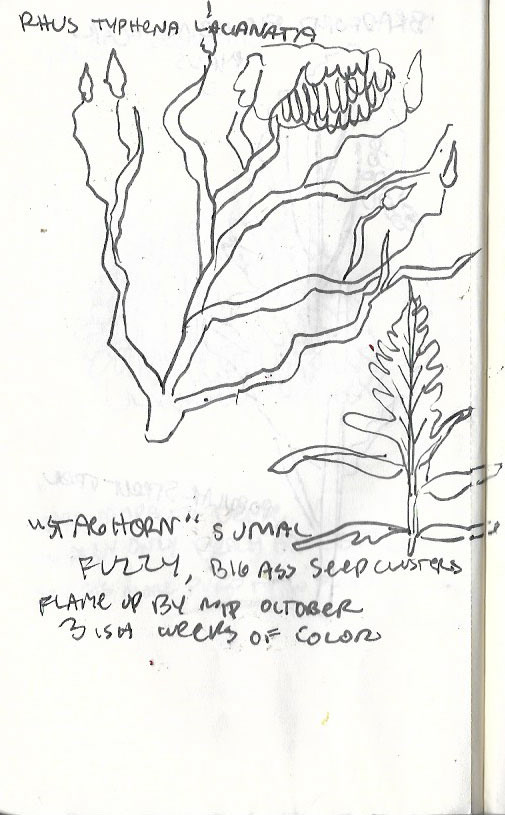 RHUS TYPHENA LACIANATA
"STAGHORN" SUMAC
FUZZY, BIG ASS SEED CLUSTERS
FLAME UP BY MID OCTOBER
3 ISH WEEKS OF COLOR